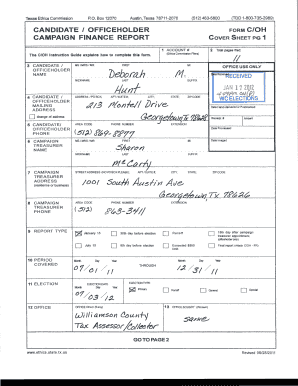 Texas Ethics Commission P.O. Box 12070 Austin, Texas 78711-2070 (512) 463-5800 (TDD 1-800-735-2989)
CANDIDATE / OFFICEHOLDER
CAMPAIGN FINANCE REPORT
FORM C/OH
COVER SHEET PG 1
The C/OH Instruction Guide explains how to complete this form.
1 ACCOUNT #
2 Total pages filed:
11
3 CANDIDATE / OFFICEHOLDER NAME
FIRST MI
Deborah M.
NICKNAME LAST SUFFIX
Hunt
OFFICE USE ONLY
RECEIVED
JAN 17 2012
WC ELECTIONS
4 CANDIDATE / OFFICEHOLDER MAILING ADDRESS
change of address
ADDRESS / PO BOX; APT / SUITE #; CITY; STATE; ZIP CODE
213 Montell Drive
Georgetown Tx 78628
5 CANDIDATE / OFFICEHOLDER PHONE
AREA CODE PHONE NUMBER EXTENSION
(512) 869-8897
Receipt # Amount
Date Processed
Date Imaged
6 CAMPAIGN TREASURER NAME
FIRST MI
Sharon
NICKNAME LAST SUFFIX
McCarty
7 CAMPAIGN TREASURER ADDRESS
(residence or business)
1001 South Austin Ave
Georgetown, Tx 78626
8 CAMPAIGN TREASURER PHONE
AREA CODE PHONE NUMBER EXTENSION
(512) 863-3411
9 REPORT TYPE
January 15
30th day before election
Runoff
15th day after campaign treasurer appointment (officeholder only)
July 15
8th day before election
Exceeded $500 limit
Final report (Attach C/OH - FR)
10 PERIOD COVERED
Month Day Year
07/01/11
THROUGH
Month Day Year
12/31/11
11 ELECTION
ELECTION DATE
Month Day Year
07/03/12
ELECTION TYPE
Primary
Runoff
General
Special
12 OFFICE
OFFICE HELD (if any)
Williamson County
Tax Assessor/Collector
13 OFFICE SOUGHT (if known)
same
GO TO PAGE 2
www.ethics.state.tx.us
Revised 09/28/2011